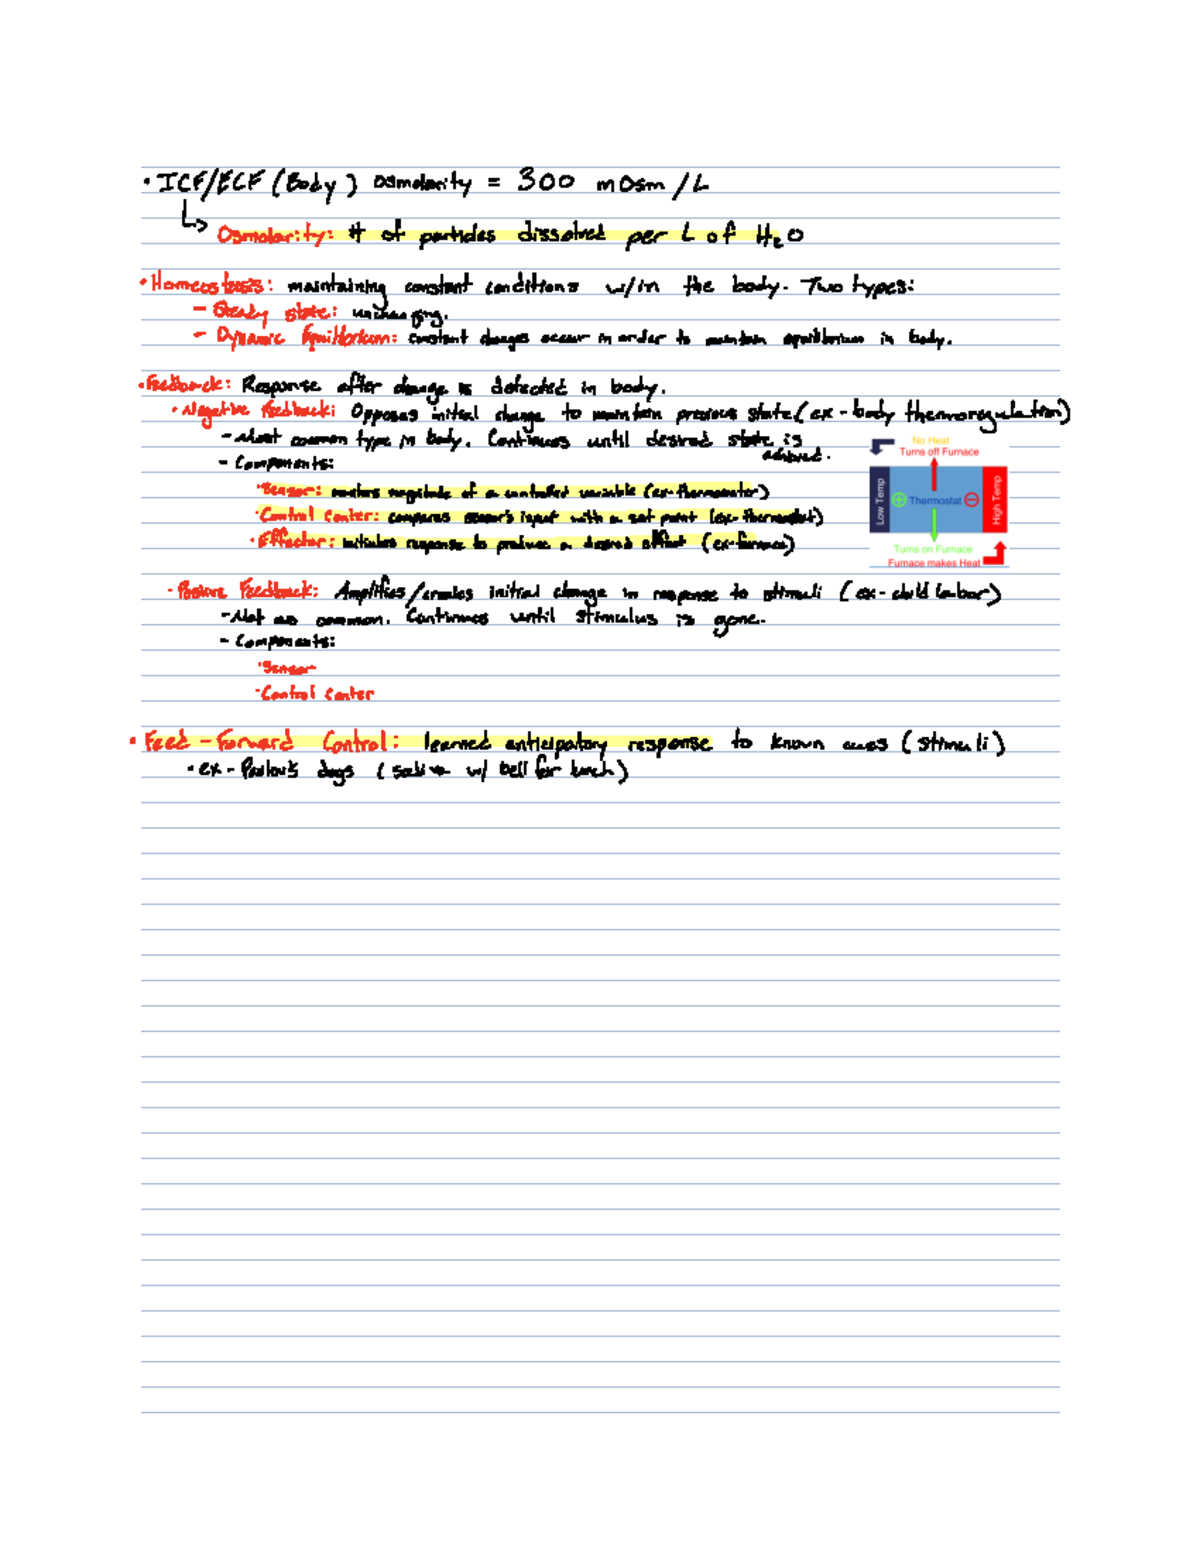 • ICF/ECF (Body) Osmolarity = 300 mOsm/L
↳ Osmolarity: # of particles dissolved per L of H₂O
• Homeostasis: maintaining constant conditions w/in the body. Two types:
- Steady state: unchanging.
- Dynamic Equilibrium: constant changes occur in order to maintain equilibrium in body.
• Feedback: Response after change is detected in body.
• Negative Feedback: Opposes initial change to maintain previous state (ex - body thermoregulation)
- Most common type in body. Continues until desired state is achieved.
- Components:
• Sensor: magnitude of a controlled variable (ex-thermometer)
• Control Center: compares sensor's input with a set point (ex-thermostat)
• Effector: initiates response to produce a desired effect (ex-furnace)
No Heat
Turns off Furnace
Low Temp
⊕ Thermostat ⊖
High Temp
Turns on Furnace
Furnace makes Heat
- Positive Feedback: Amplifies/ initial change in response to stimuli (ex- child labor)
- Not as common. Continues until stimulus is gone.
- Components:
• Sensor
• Control Center
• Feed-Forward Control: learned anticipatory response to known cues (stimuli)
• ex - Pavlov's dogs (saliva w/ bell for lunch)